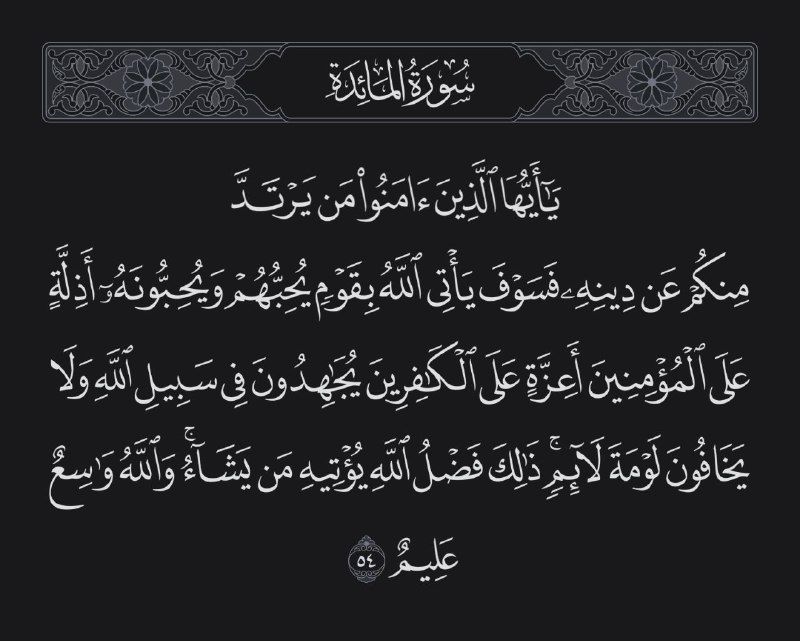 سُورَةُ المَائِدَةِ
يَٰٓأَيُّهَا ٱلَّذِينَ ءَامَنُوا۟ مَن يَرْتَدَّ
مِنكُمْ عَن دِينِهِۦ فَسَوْفَ يَأْتِى ٱللَّهُ بِقَوْمٍ يُحِبُّهُمْ وَيُحِبُّونَهُۥٓ أَذِلَّةٍ
عَلَى ٱلْمُؤْمِنِينَ أَعِزَّةٍ عَلَى ٱلْكَٰفِرِينَ يُجَٰهِدُونَ فِى سَبِيلِ ٱللَّهِ وَلَا
يَخَافُونَ لَوْمَةَ لَآئِمٍ ۚ ذَٰلِكَ فَضْلُ ٱللَّهِ يُؤْتِيهِ مَن يَشَآءُ ۚ وَٱللَّهُ وَٰسِعٌ
عَلِيمٌ ٥٤